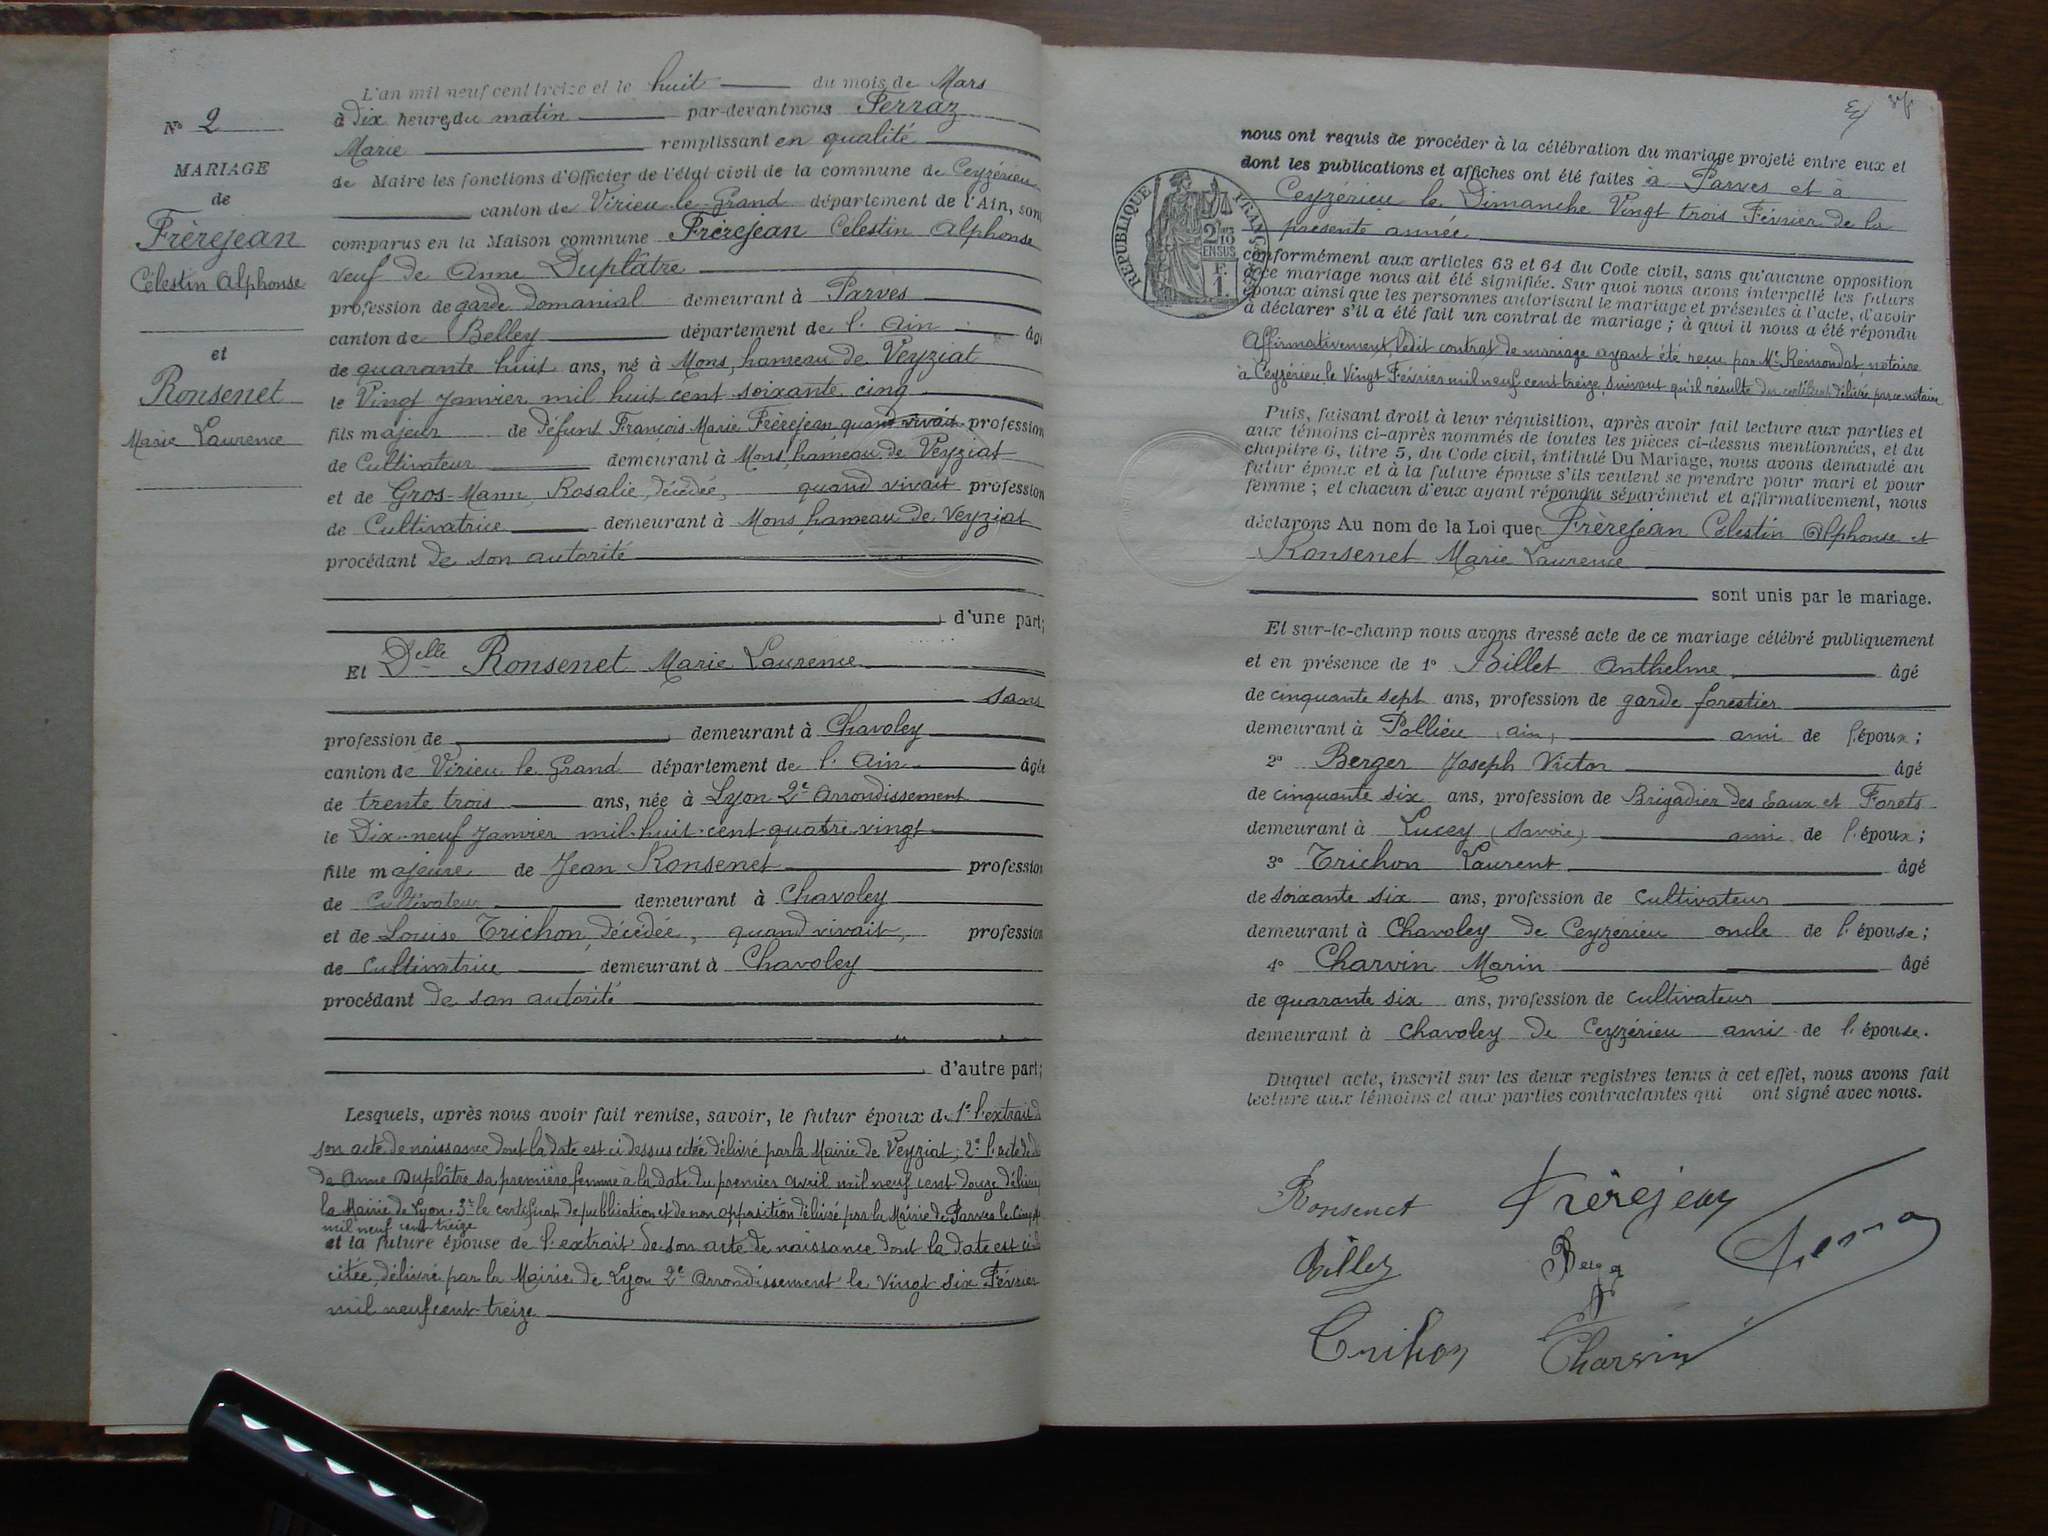 L'an mil neuf cent treize et le huit du mois de Mars
à Dix heures du matin par-devant nous Ferraz
Marie remplissant en qualité
de Maire les fonctions d'Officier de l'état civil de la commune de Ceyzérieu
canton de Virieu-le-Grand département de l'Ain, sont
comparus en la Maison commune Frèrejean Celestin Alphonse
veuf de Anne Duplâtre
profession de garde domanial demeurant à Parves
canton de Belley département de l'Ain âgé
de quarante huit ans, né à Mons, hameau de Veyziat
le Vingt Janvier mil huit cent soixante cinq
fils majeur de défunt François Marie Frèrejean quand vivait profession
de Cultivateur demeurant à Mons, hameau de Veyziat
et de Gros-Mann Rosalie, décédée, quand vivait profession
de Cultivatrice demeurant à Mons, hameau de Veyziat
procédant de son autorité
d'une part;
Et Delle Ronsenet Marie Laurence
sans
profession de demeurant à Chavoley
canton de Virieu le Grand département de l'Ain âgée
de trente trois ans, née à Lyon 2e Arrondissement
le Dix-neuf Janvier mil-huit-cent-quatre-vingt
fille majeure de Jean Ronsenet profession
de Cultivateur demeurant à Chavoley
et de Louise Trichon, décédée, quand vivait, profession
de Cultivatrice demeurant à Chavoley
procédant de son autorité
d'autre part;
Lesquels, après nous avoir fait remise, savoir, le futur époux de 1° l'extrait de
son acte de naissance dont la date est ci dessus citée délivré par la Mairie de Veyziat; 2° l'acte de
de Anne Duplâtre sa première femme à la date du premier avril mil neuf cent douze délivré
la Mairie de Lyon, 3° le certificat de publication et de non opposition délivré par la Mairie de Parves le cinq
mil neuf cent treize
et la future épouse de l'extrait de son acte de naissance dont la date est ci
citée, délivré par la Mairie de Lyon 2e Arrondissement le Vingt six Février
mil neuf cent treize
N° 2
MARIAGE
de
Frèrejean
Celestin Alphonse
et
Ronsenet
Marie Laurence
nous ont requis de procéder à la célébration du mariage projeté entre eux et
dont les publications et affiches ont été faites à Parves et à
Ceyzérieu le Dimanche Vingt trois Février de la
présente année
conformément aux articles 63 et 64 du Code civil, sans qu'aucune opposition
à ce mariage nous ait été signifiée. Sur quoi nous avons interpellé les futurs
époux ainsi que les personnes autorisant le mariage et présentes à l'acte, d'avoir
à déclarer s'il a été fait un contrat de mariage; à quoi il nous a été répondu
Affirmativement, ledit contrat de mariage ayant été reçu par Me Remondat, notaire
à Ceyzérieu le Vingt Février mil neuf cent treize, suivant qu'il résulte du certificat délivré par ce notaire
Puis, faisant droit à leur réquisition, après avoir fait lecture aux parties et
aux témoins ci-après nommés de toutes les pièces ci-dessus mentionnées, et du
chapitre 6, titre 5, du Code civil, intitulé Du Mariage, nous avons demandé au
futur époux et à la future épouse s'ils veulent se prendre pour mari et pour
femme; et chacun d'eux ayant répondu séparément et affirmativement, nous
déclarons Au nom de la Loi que Frèrejean Celestin Alphonse et
Ronsenet Marie Laurence
sont unis par le mariage.
Et sur-le-champ nous avons dressé acte de ce mariage célébré publiquement
et en présence de 1° Billet Anthelme âgé
de cinquante sept ans, profession de garde forestier
demeurant à Pollieu (ain) ami de l'époux;
2° Berger Joseph Victor âgé
de cinquante six ans, profession de Brigadier des Eaux et Forets
demeurant à Lucey (Savoie) ami de l'époux;
3° Trichon Laurent âgé
de soixante six ans, profession de cultivateur
demeurant à Chavoley de Ceyzérieu oncle de l'épouse;
4° Charvin Marin âgé
de quarante six ans, profession de cultivateur
demeurant à Chavoley de Ceyzérieu ami de l'épouse.
Duquel acte, inscrit sur les deux registres tenus à cet effet, nous avons fait
lecture aux témoins et aux parties contractantes qui ont signé avec nous.
Ronsenet Frèrejean
Billet Berger Ferraz
Trichon Charvin
REPUBLIQUE FRANÇAISE
2/10 EN SUS
F. 1.